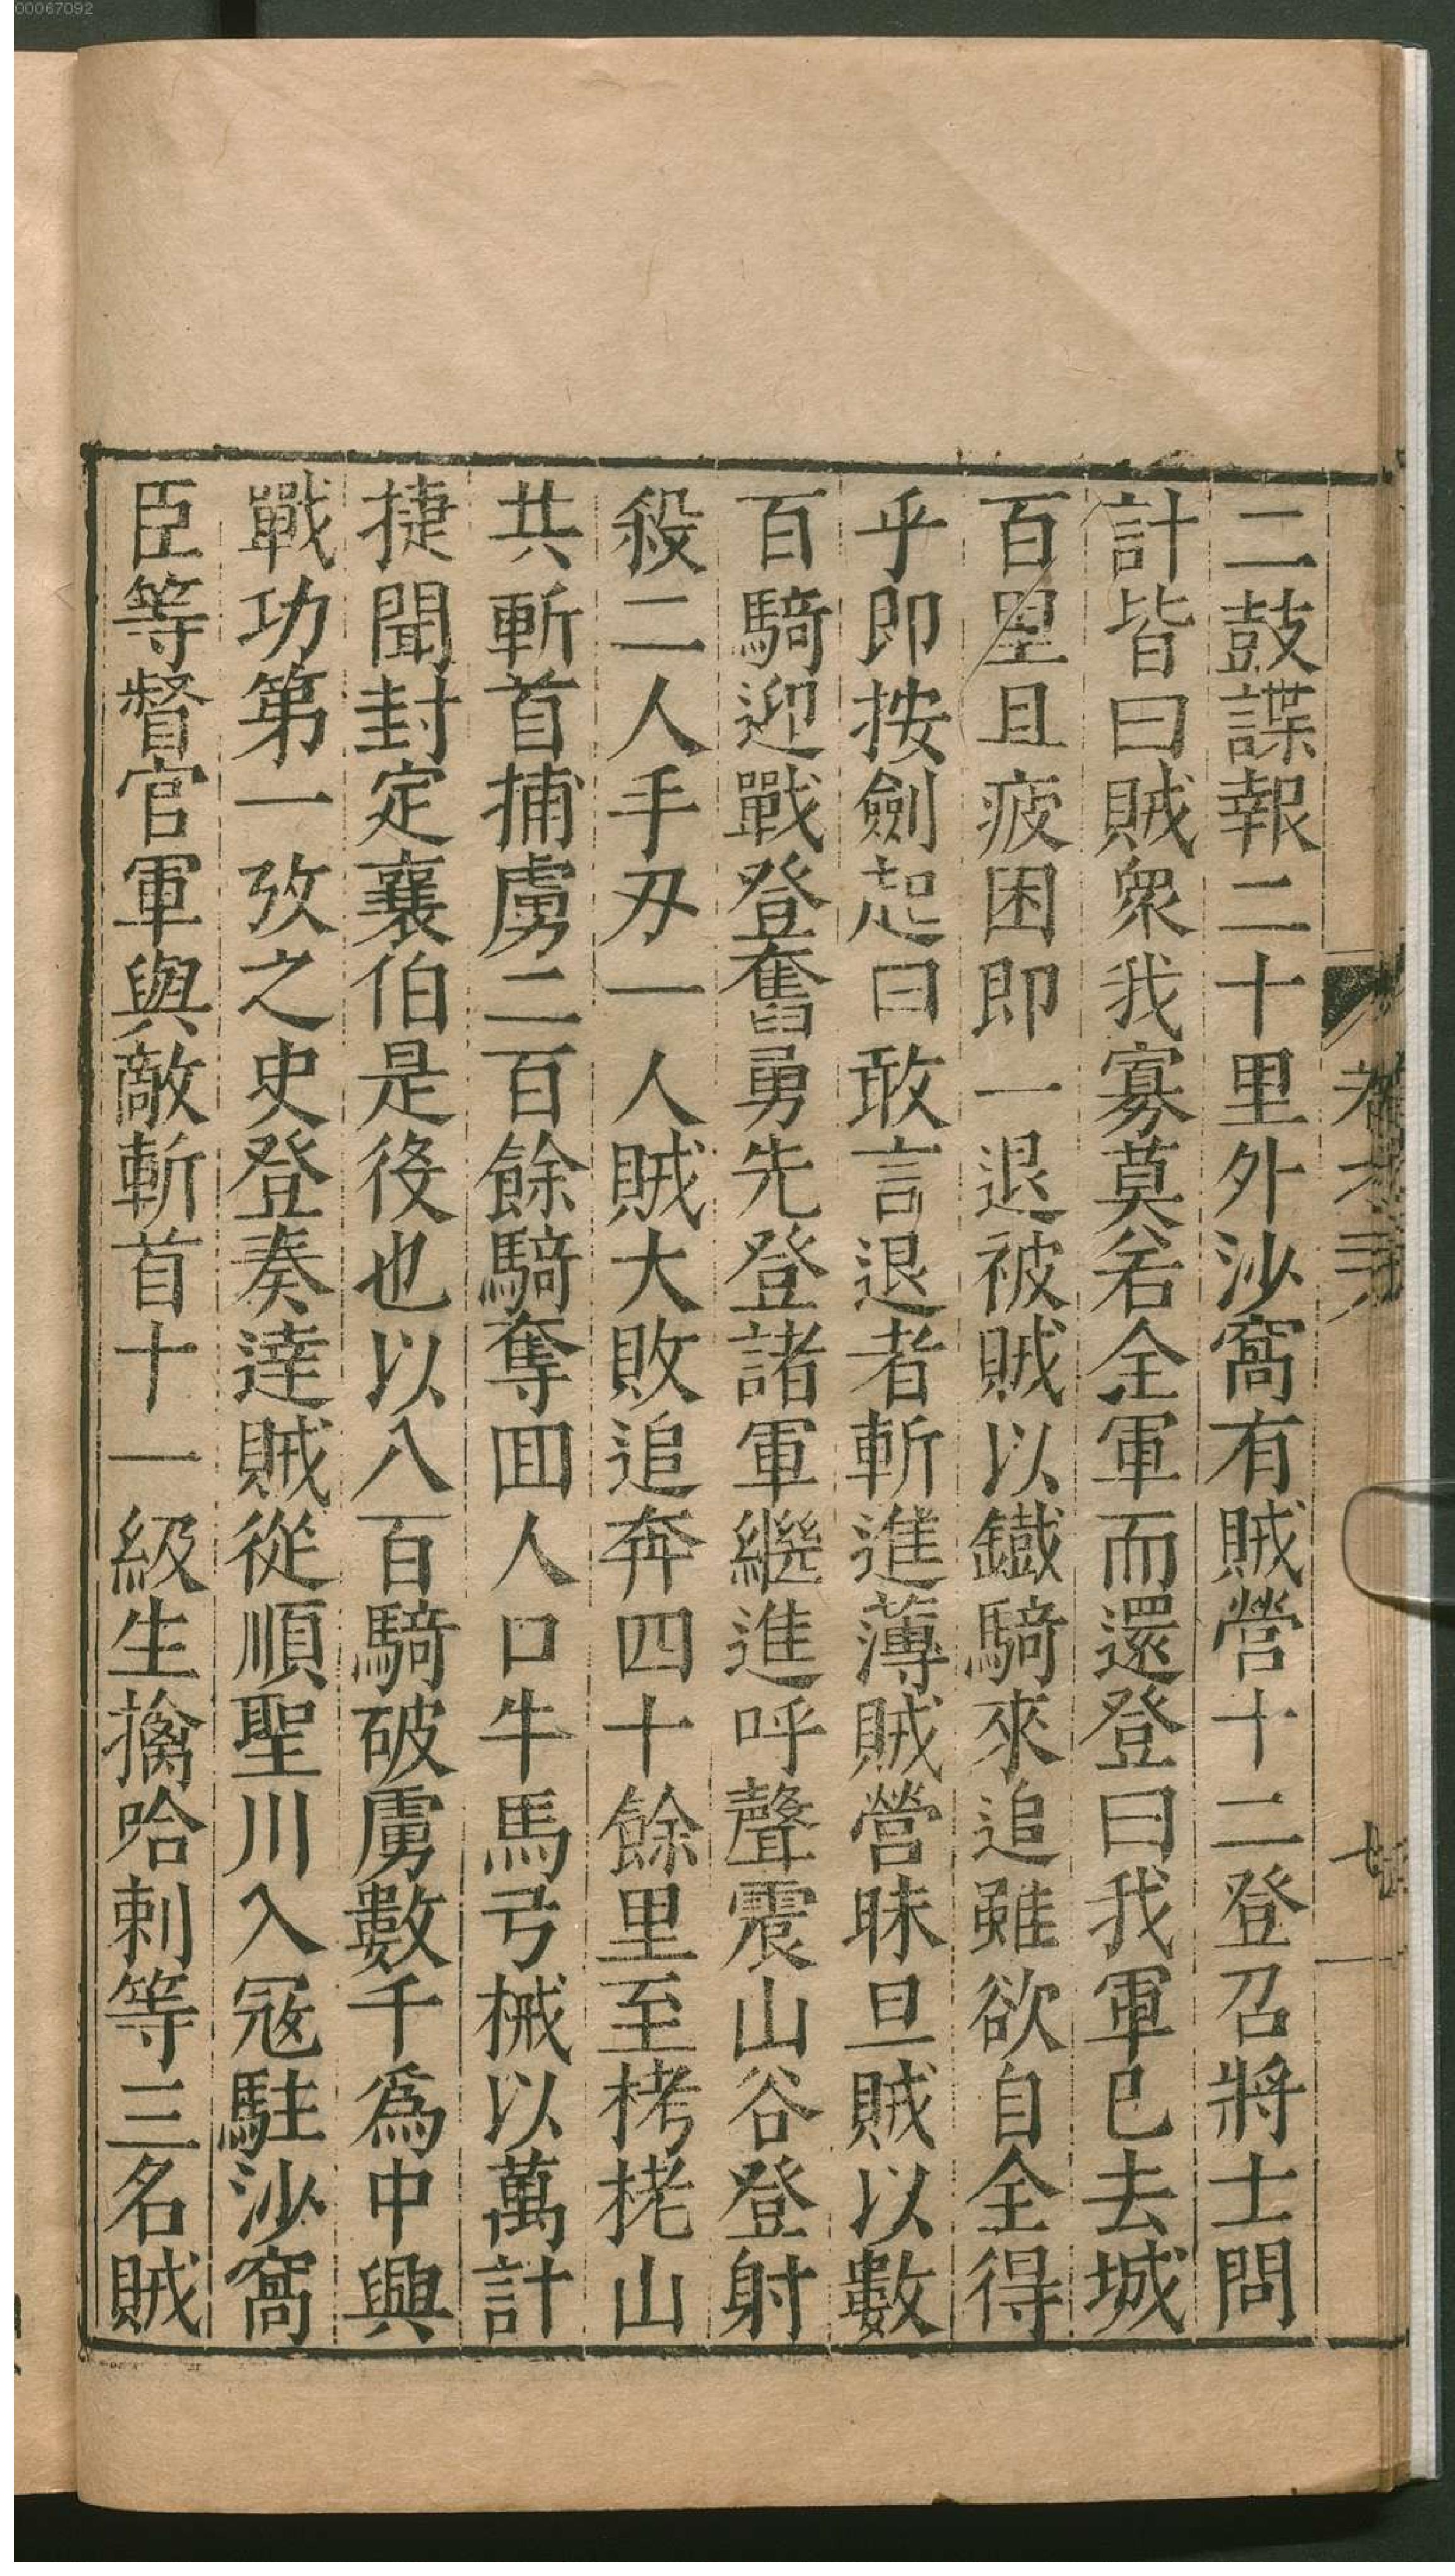 00067092
二鼓諜報二十里外沙窩有賊營十二登召將士問
計皆曰賊衆我寡莫若全軍而還登曰我軍已去城
百里且疲困即一退被賊以鐵騎來追雖欲自全得
乎即按劍起曰敢言退者斬進薄賊營昧旦賊以數
百騎迎戰登奮勇先登諸軍繼進呼聲震山谷登射
殺二人手刃一人賊大敗追奔四十餘里至栲栳山
共斬首捕虜二百餘騎奪囬人口牛馬弓械以萬計
捷聞封定襄伯是後也以八百騎破虜數千為中興
戰功第一攷之史登奏達賊從順聖川入冦駐沙窩
臣等督官軍與敵斬首十一級生擒哈剌等三名賊